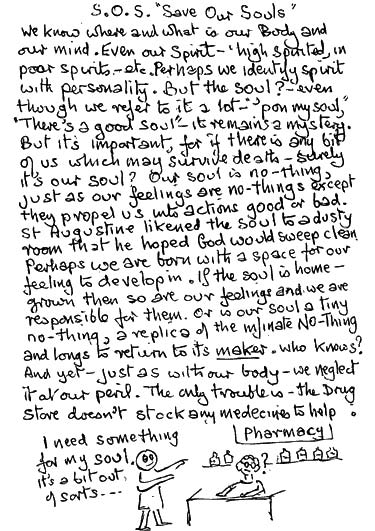 S.O.S. "Save Our Souls"
We know where and what is our Body and
our mind. Even our Spirit - 'high spirited, in
poor spirits - etc. Perhaps we identify spirit
with personality. But the soul? - even
though we refer to it a lot - "'pon my soul,"
"There's a good soul" - it remains a mystery.
But it's important, for if there is any bit
of us which may survive death - surely
it's our soul? Our soul is no-thing,
just as our feelings are no-things except
they propel us into actions good or bad.
St Augustine likened the soul to a dusty
room that he hoped God would sweep clean.
Perhaps we are born with a space for our
feeling to develop in. If the soul is home-
grown then so are our feelings and we are
responsible for them. Or is our soul a tiny
no-thing, a replica of the infinate NO-Thing
and longs to return to its maker. who knows?
And yet - just as with our body - we neglect
it at our peril. The only trouble is - the Drug
Store doesn't stock any medecines to help.
I need something
for my soul.
it's a bit out
of sorts---
Pharmacy
?